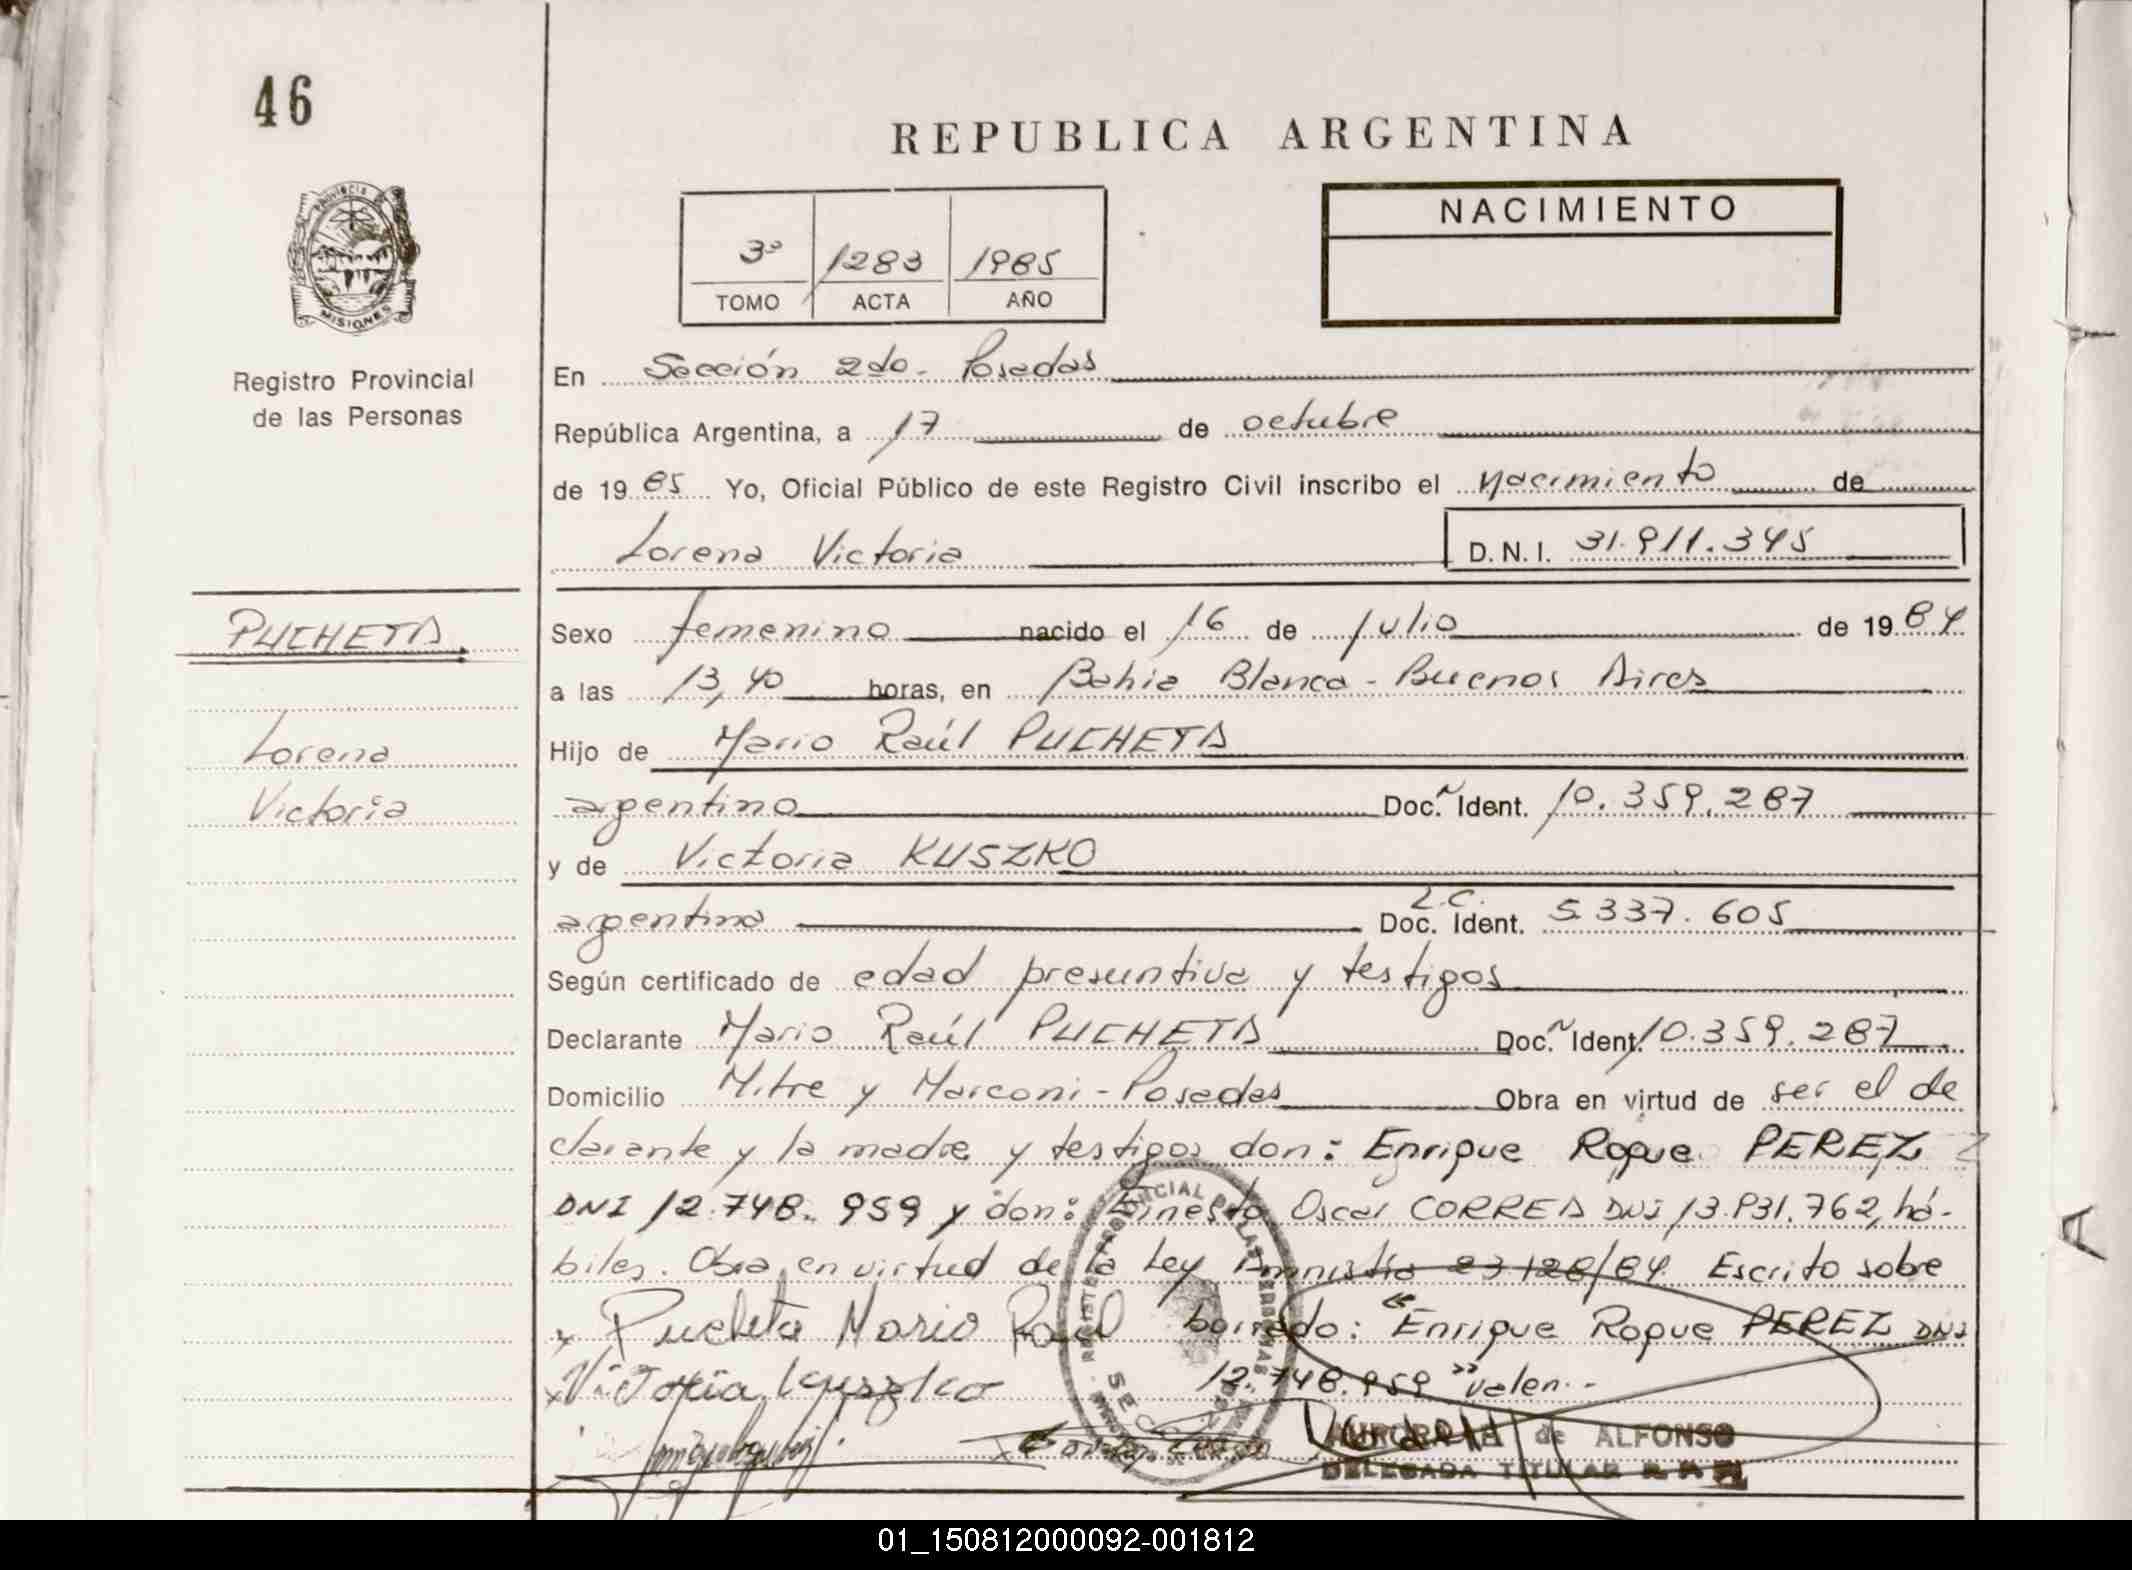 46
REPUBLICA ARGENTINA
Provincia
MISIONES
Registro Provincial
de las Personas
3º 1283 1985
TOMO ACTA AÑO
NACIMIENTO
En Sección 2do. Posadas
República Argentina, a 17 de octubre
de 19 85 Yo, Oficial Público de este Registro Civil inscribo el nacimiento de
Lorena Victoria D.N.I. 31.911.345
PUCHETA
Lorena
Victoria
Sexo femenino nacido el 16 de julio de 19 84
a las 13,40 horas, en Bahia Blanca - Buenos Aires
Hijo de Mario Raúl PUCHETA
argentino Doc. Ident. 10.359.287
y de Victoria KUSZKO
argentina L.C. Doc. Ident. 5.337.605
Según certificado de edad presuntiva y testigos
Declarante Mario Raúl PUCHETA Doc. Ident. 10.359.287
Domicilio Mitre y Marconi - Posadas Obra en virtud de ser el de
clarante y la madre y testigos don: Enrique Roque PEREZ
DNI 12.748.959 y don: Ernesto Oscar CORREA DNI 13.831.762, há-
biles. Obra en virtud de la Ley Amnistía 23128/84. Escrito sobre
x Pucheta Mario Raul borrado: "Enrique Roque PEREZ DNI
x Victoria Kuszko 12.748.959" valen.-
de ALFONSO
DELEGADA TITULAR
A
01_150812000092-001812